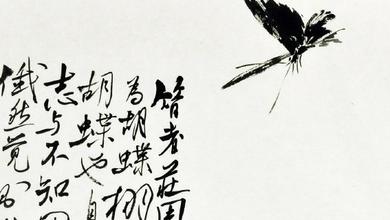 昔者莊周
為胡蝶栩
胡蝶也自
志与不知
俄然觉